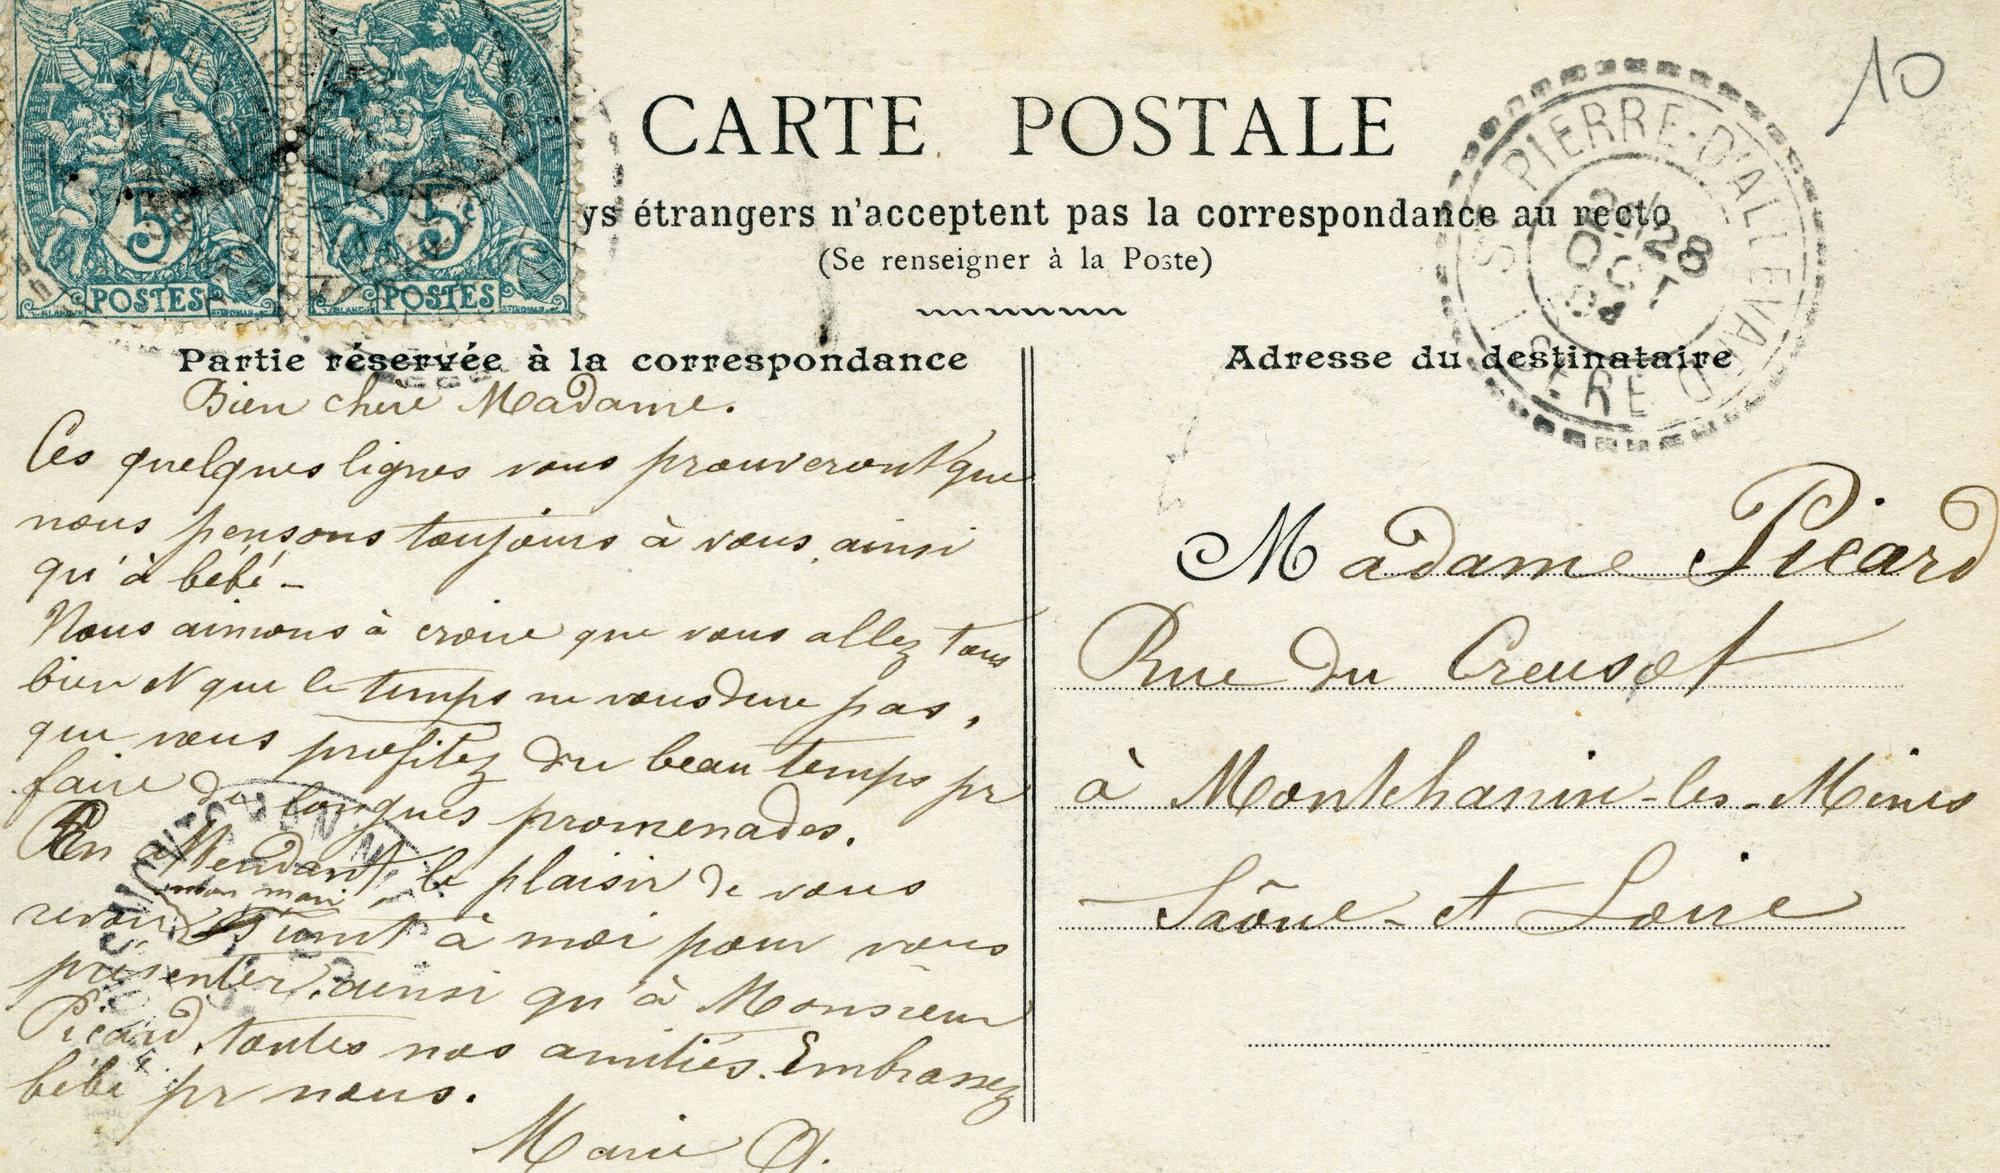 CARTE POSTALE
ys étrangers n'acceptent pas la correspondance au recto
(Se renseigner à la Poste)
5c
POSTES
5c
POSTES
ST PIERRE-D'ALLEVARD
28
OCT
04
ISERE
10
Partie réservée à la correspondance
Bien chère Madame.
Ces quelques lignes vous prouveront que
nous pensons toujours à vous, ainsi
qu'à bébé -
Nous aimons à croire que vous allez tous
bien et que le temps ne vous dure pas,
que vous profitez du beau temps pr
faire de longues promenades.
En attendant le plaisir de vous
mon mari
revoir s'unit à moi pour vous
présenter, ainsi qu'à Monsieur
Picard, toutes nos amitiés. Embrassez
bébé pr nous.
Marie
Adresse du destinataire
Madame Picard
Rue du Creusot
à Montchanin-les-Mines
Saône-et Loire